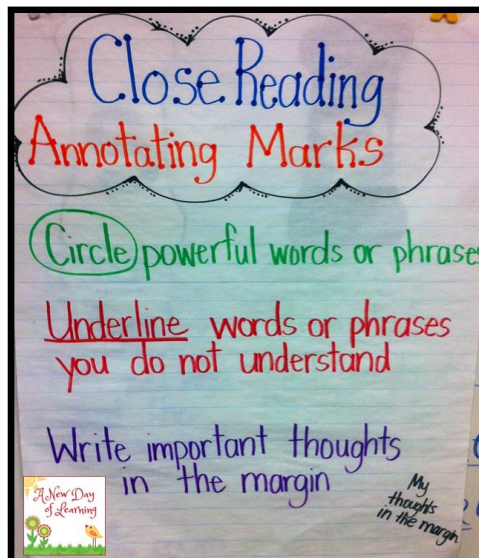 Close Reading
Annotating Marks
Circle powerful words or phrases
Underline words or phrases
you do not understand
Write important thoughts
in the margin
My
thoughts
in the margin
A New Day
of Learning